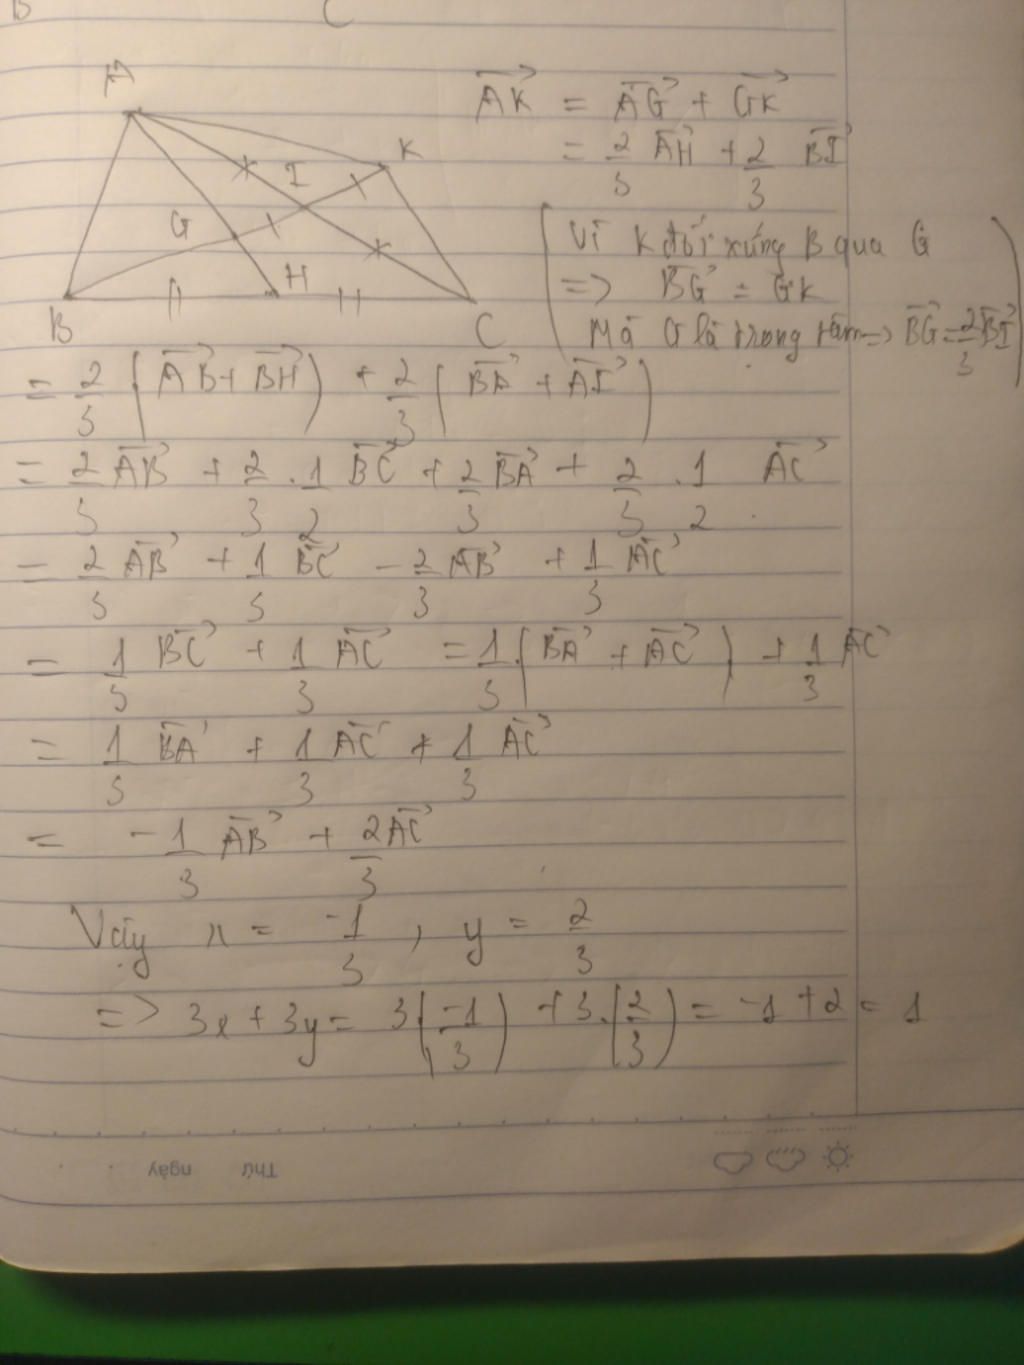 B C
A
K
I
G
H
B
C
AK⃗ = AG⃗ + GK⃗
= 2/3 AH⃗ + 2/3 BI⃗
(Vì K đối xứng B qua G
=> BG⃗ = GK
Mà G là trọng tâm => BG⃗ = 2/3 BI⃗)
= 2/3 (AB⃗ + BH⃗) + 2/3 (BA⃗ + AI⃗)
= 2/3 AB⃗ + 2/3 . 1/2 BC⃗ + 2/3 BA⃗ + 2/3 . 1/2 AC⃗
= 2/3 AB⃗ + 1/3 BC⃗ - 2/3 AB⃗ + 1/3 AC⃗
= 1/3 BC⃗ + 1/3 AC⃗ = 1/3 (BA⃗ + AC⃗) + 1/3 AC⃗
= 1/3 BA⃗ + 1/3 AC⃗ + 1/3 AC⃗
= -1/3 AB⃗ + 2/3 AC⃗
Vậy x = -1/3 , y = 2/3
=> 3x + 3y = 3(-1/3) + 3.(2/3) = -1 + 2 = 1
Thứ ngày